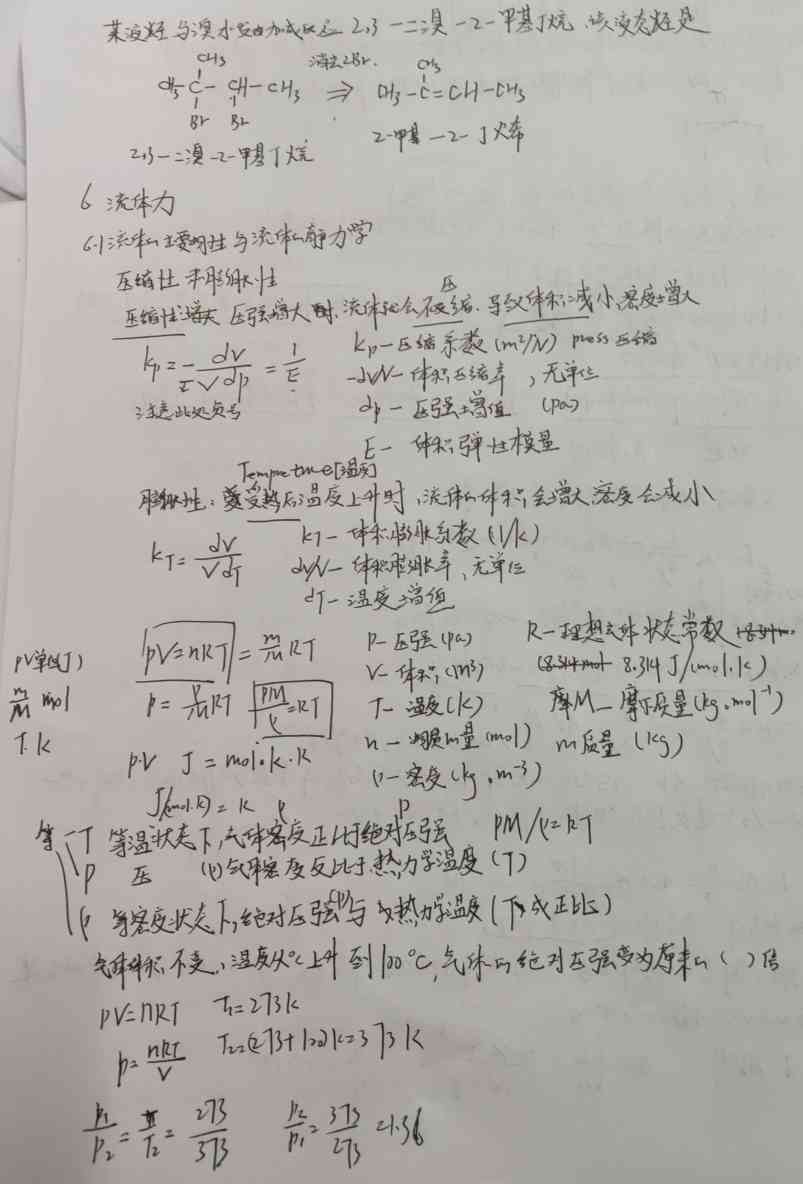 某液烃与溴水发生加成反应 2,3-二溴-2-甲基丁烷,该液态烃是
CH3 消去2Br. CH3
CH3-C-CH-CH3 ⇒ CH3-C=CH-CH3
Br Br
2-甲基-2-丁烯
2,3-二溴-2-甲基丁烷
6 流体力
6.1 流体的主要物性与流体的静力学
压缩性和膨胀性
压缩性: 压强增大时,流体会压缩.导致体积减小,密度增大
kp=-dV/Vdp=1/E kp-压缩系数(m²/N) press 压缩
-dV/V-体积压缩率,无单位
注意此处负号 dp-压强增值 (pa)
E-体积弹性模量
Tempreture[温度]
膨胀性: 受热后温度上升时,流体的体积会增大,密度会减小
kT=dV/VdT kT-体积膨胀系数(1/k)
dV/V-体积膨胀率,无单位
dT-温度增值
pV=nRT=m/M RT P-压强(pa) R-理想气体状态常数
pV单位J V-体积(m³) 8.314 J/(mol.k)
m/M mol p=ρ/M RT PM/ρ=RT T-温度(k) M-摩尔质量(kg.mol⁻¹)
T.k n-物质的量(mol) m质量(kg)
p.V J=mol.k.R ρ-密度(kg.m⁻³)
J/(mol.k)=R ρ p
等-T 等温状态下,气体密度正比于绝对压强 PM/ρ=RT
p 压 (ρ)气体密度反比于热力学温度(T)
ρ 等密度状态下,绝对压强(p)与热力学温度(T)成正比
气体体积不变,温度从0℃上升到100℃,气体的绝对压强变为原来的( )倍
pV=nRT T1=273k
p=nRT/V T2=(273+100)k=373k
p1/p2=T1/T2=273/373 p2/p1=373/273=1.36